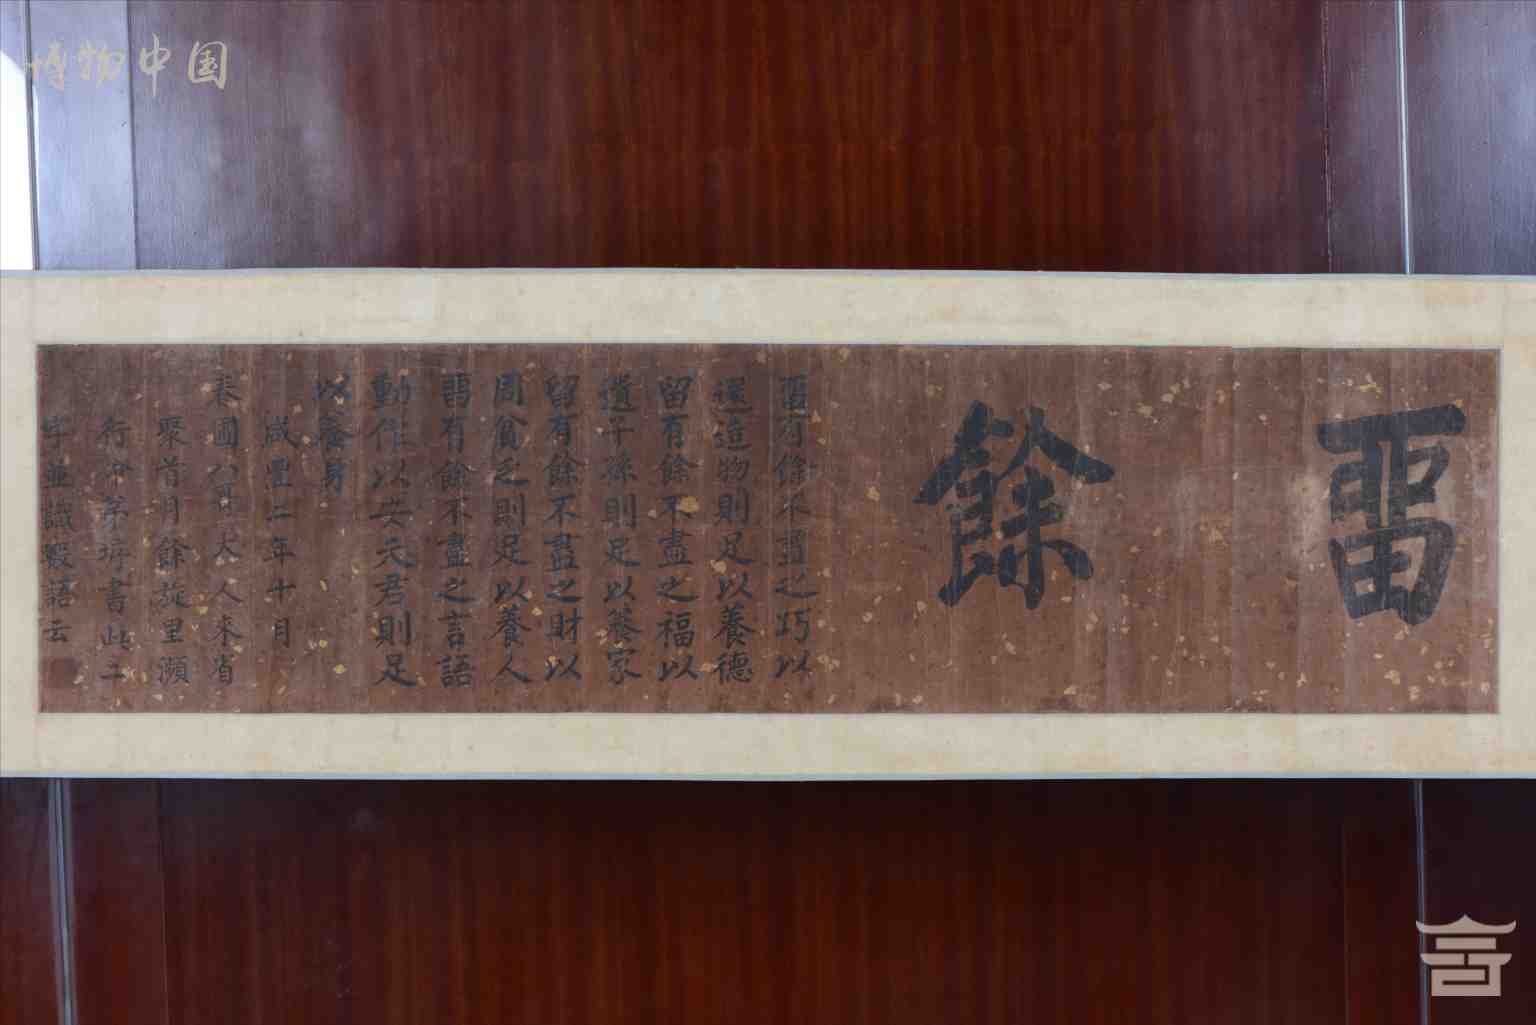 博物中国
畱餘
畱有餘不盡之巧以
還造物則足以養德
留有餘不盡之福以
遺子孫則足以養家
留有餘不盡之財以
周貧乏則足以養人
畱有餘不盡之言語
動作以安天君則足
以養身
咸豐二年十月
泰國公 大人來省
聚首月餘旋里瀕
行命弟 書此二
字並識數語云